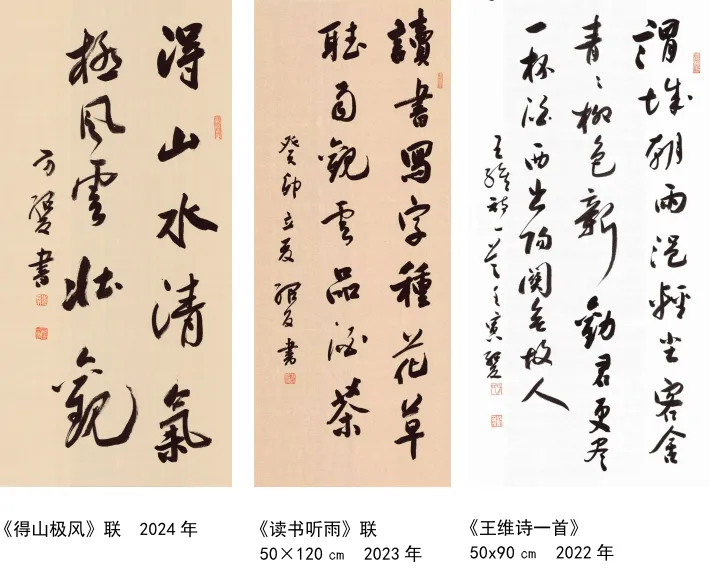 得山水清氣
極風雲壯觀
方 書
讀書寫字種花草
聽雨觀雲品酒茶
癸卯立夏 書
渭城朝雨浥輕塵客舍
青々柳色新勸君更盡
一杯酒西出陽關無故人
王維詩一首壬寅
《得山极风》联 2024 年
《读书听雨》联
50×120 cm 2023 年
《王维诗一首》
50x90 cm 2022 年